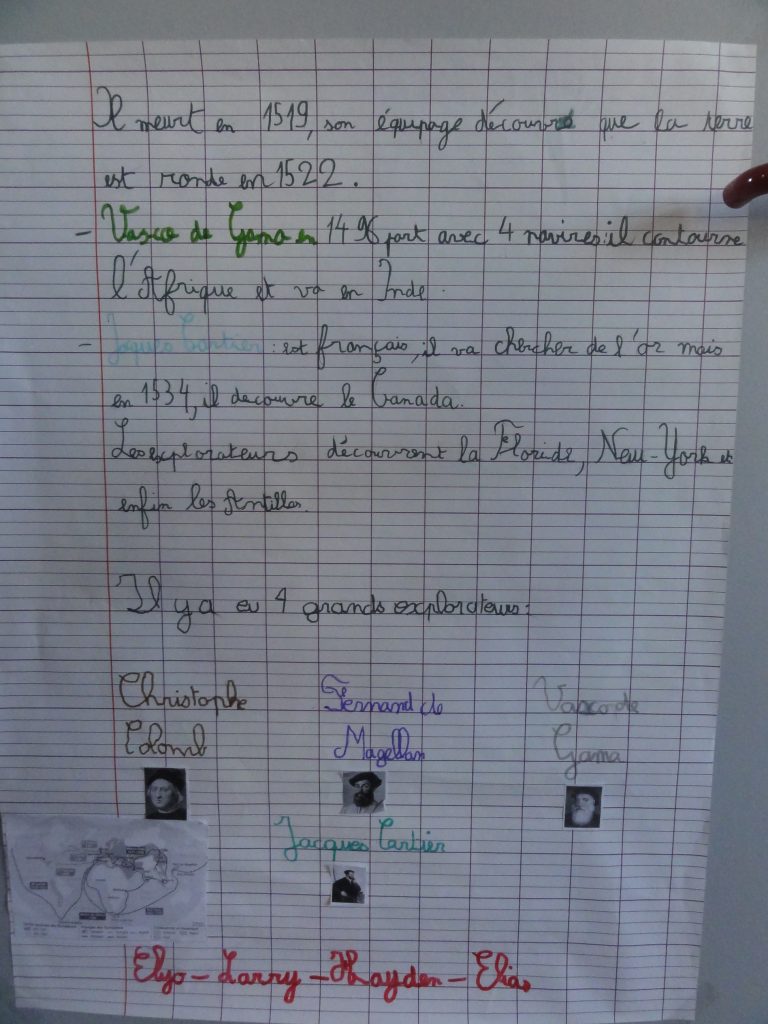 Il meurt en 1519, son équipage découvre que la terre
est ronde en 1522.
- Vasco de Gama en 1496 part avec 4 navires il contourne
l'Afrique et va en Inde.
- Jaques Cartier : est français, il va chercher de l'or mais
en 1534, il decouvre le Canada.
Les explorateurs découvrent la Floride, New-York et
enfin les Antilles.
Il y a eu 4 grands explorateurs :
Christophe
Colomb
Fernand de
Magellan
Vasco de
Gama
Jacques Cartier
Elyo - Larry - Hayden - Elias